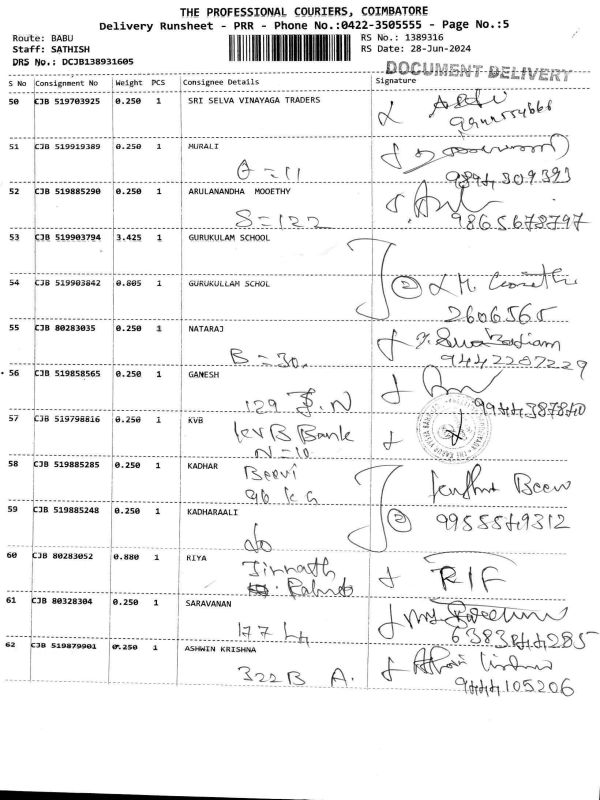 THE PROFESSIONAL COURIERS, COIMBATORE
Delivery Runsheet - PRR - Phone No.:0422-3505555 - Page No.:5
Route: BABU RS No.: 1389316
Staff: SATHISH RS Date: 28-Jun-2024
DRS No.: DCJB138931605
DOCUMENT DELIVERY
S No Consignment No Weight PCS Consignee Details Signature
50 CJB 519703925 0.250 1 SRI SELVA VINAYAGA TRADERS
51 CJB 519919389 0.250 1 MURALI
9894309393
52 CJB 519885290 0.250 1 ARULANANDHA MOOETHY
S=122
9865678797
53 CJB 519903794 3.425 1 GURUKULAM SCHOOL
54 CJB 519903842 0.805 1 GURUKULLAM SCHOL
2
2606565
55 CJB 80283035 0.250 1 NATARAJ
B=30.
9442287229
56 CJB 519858565 0.250 1 GANESH
129
9944387840
57 CJB 519798816 0.250 1 KVB
KVB Bank
N=10
58 CJB 519885285 0.250 1 KADHAR
Beevi
96 KG
59 CJB 519885248 0.250 1 KADHARAALI
do
2
9955549312
60 CJB 80283052 0.880 1 RIYA
RIF
61 CJB 80328304 0.250 1 SARAVANAN
177 L4
6383944285
62 CJB 519879901 0.250 1 ASHWIN KRISHNA
322B A.
9444105206